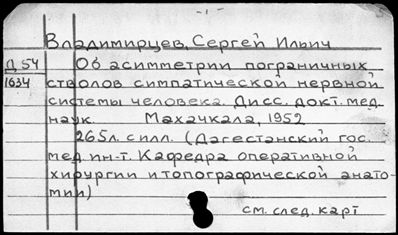 - 1 -
Владимирцев, Сергей Ильич
Д 54
1634
Об асимметрии пограничных
стволов симпатической нервной
системы человека. Дисс. докт. мед.
наук. Махачкала, 1952
265л. с илл. (Дагестанский гос.
мед. ин-т. Кафедра оперативной
хирургии и топографической анато-
мии)
см. след. карт